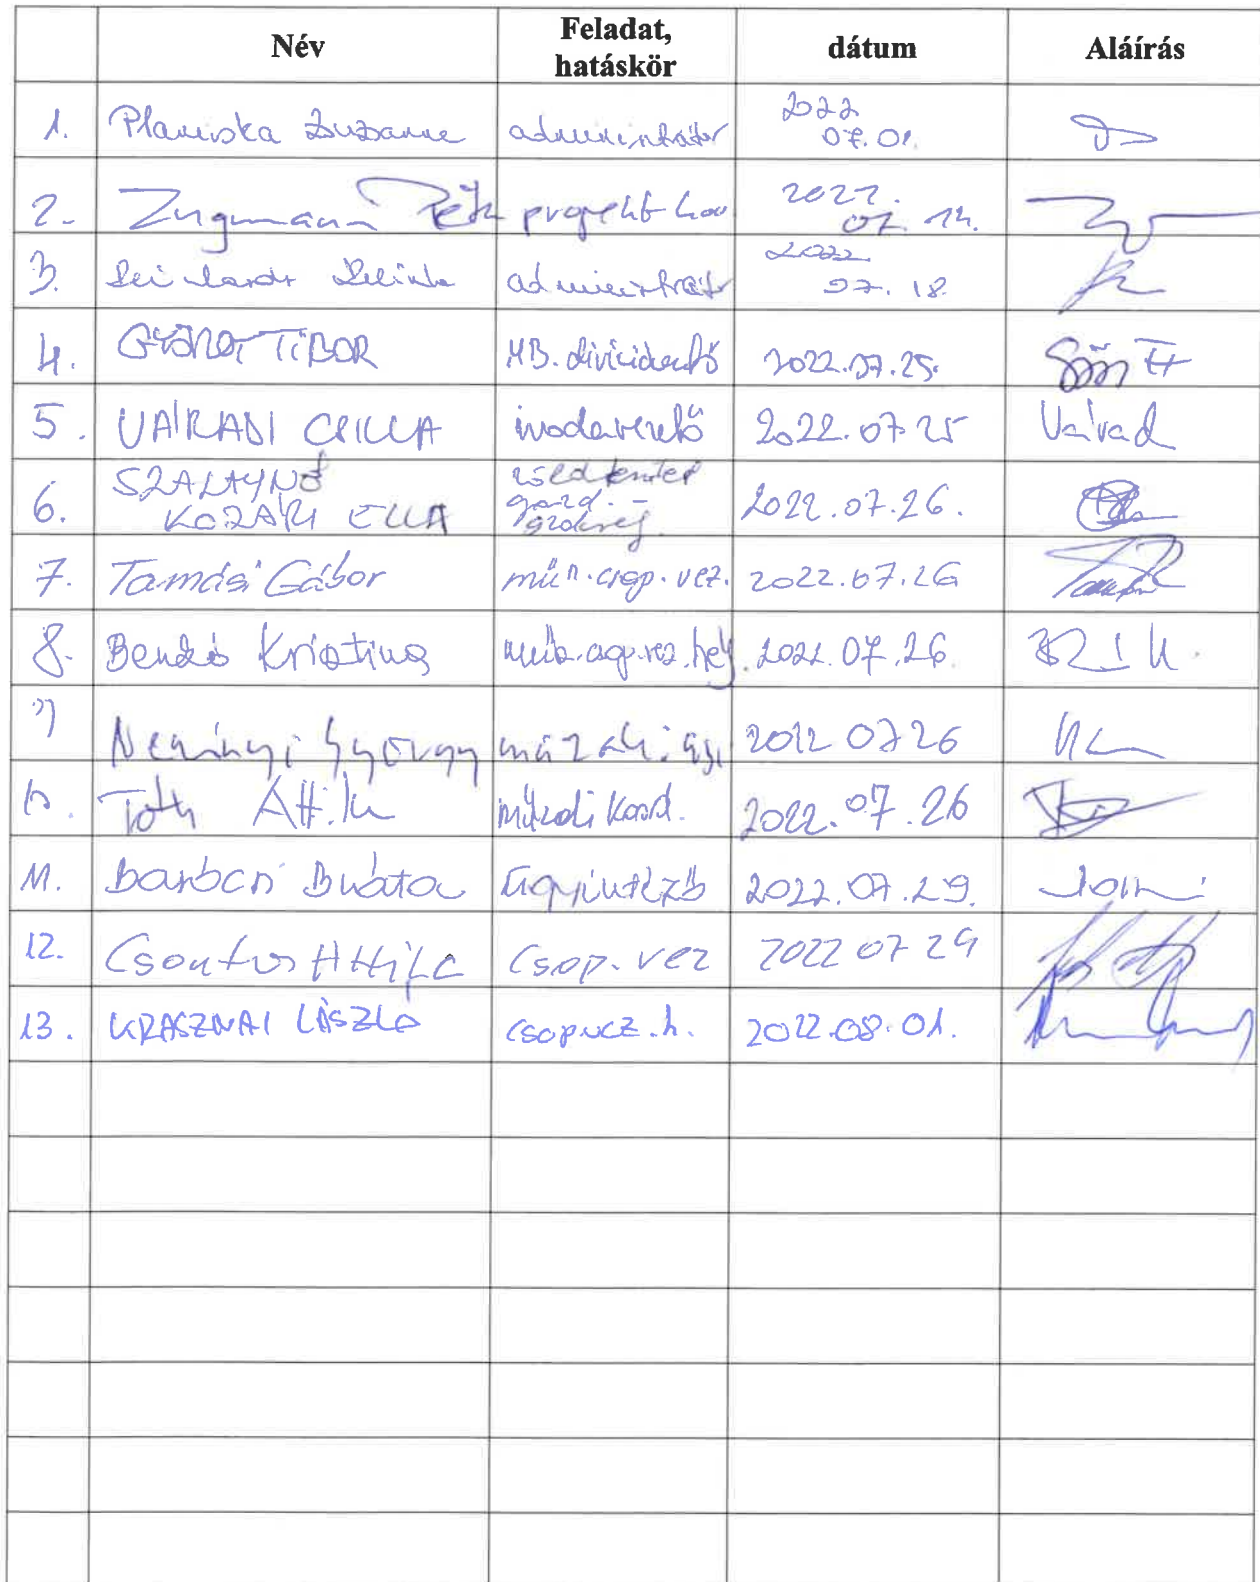 Név Feladat, hatáskör dátum Aláírás
1. Planiska Zuzanna adminisztrátor 2022 07.01.
2. Zugmann Péter projekt 2022. 07. 14.
3. adminisztrátor 2022 07. 18.
4. GYÖRGY TIBOR 2022.07.25.
5. VÁRADI CSILLA irodavezető 2022.07.25 Várad
6. SZALAYNÉ KOZÁRI ELLA zöldterület gazd. - 2022.07.26.
7. Tamási Gábor műn.csop.vez. 2022.07.26
8. Benkó Krisztina csop.vez.hely. 2022.07.26.
9) György 2022 07 26
10. Tóth Attila műszaki koord. 2022.07.26
11. Beáta ügyintéző 2022.07.29.
12. Csontos Attila Csop. vez 2022 07 29
13. KRASZNAI LÁSZLÓ csop.vez.h. 2022.08.01.